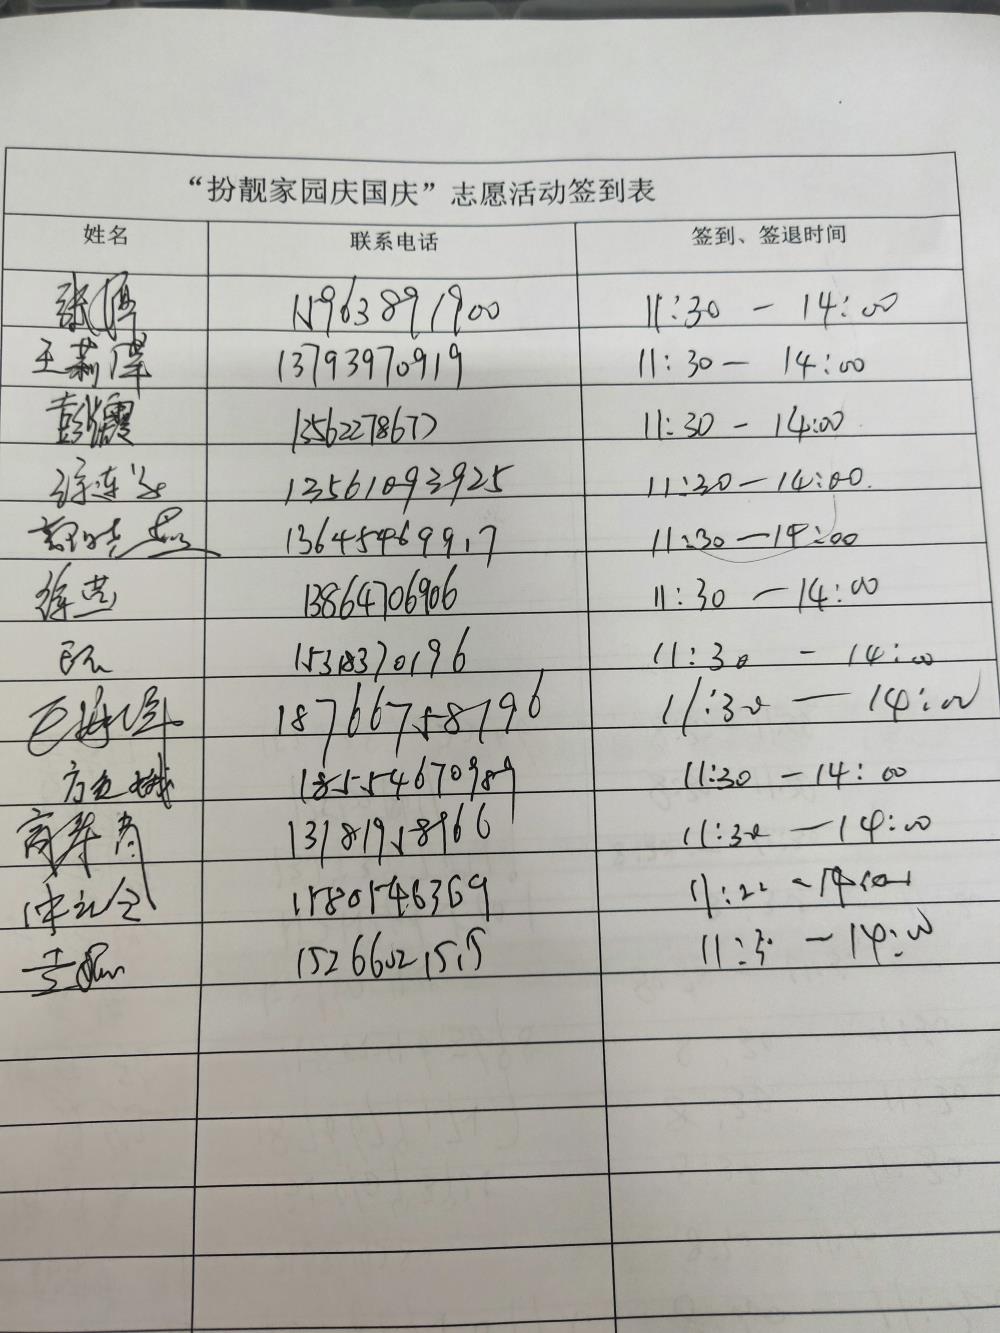 “扮靓家园庆国庆”志愿活动签到表
姓名 联系电话 签到、签退时间
张 15963891900 11:30 — 14:00
王莉萍 13793970919 11:30 — 14:00
彭 13562278677 11:30 — 14:00
徐连 13561093925 11:30 — 14:00.
13645496997 11:30 — 14:00
徐燕 13864706906 11:30 — 14:00
15318370196 11:30 — 14:00
18766758796 11:30 — 14:00
方 18554670989 11:30 — 14:00
高 13181958966 11:30 — 14:00
15801546369 — 14:00
15266021515 11:30 — 14:00